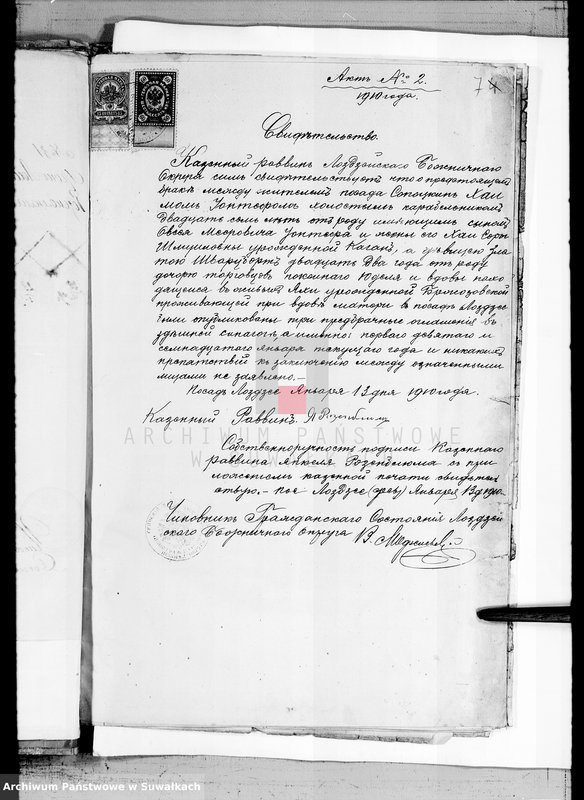 Актъ № 2.
74
1910 года.
Свидѣтельство.
Казенный раввинъ Лоздзейскаго Божничнаго
Округа симъ свидѣтельствуетъ что о предстоящемъ
бракѣ между жителемъ посада Сопоцкинъ Хаи
момъ холостымъ
двадцать семь лѣтъ отъ роду имѣющимъ сыномъ
Овсея Мееровича и жены его Хаи Соры
Шмуиловны урожденной Каганъ, а дѣвицею Зла
тою Шварцбортъ двадцать два года отъ роду
дочерью торговцевъ покойнаго Юделя и вдовы нахо
дящейся въ живыхъ урожденной
проживающей при вдовѣ матери въ посадѣ Лоздзее
были опубликованы три предбрачныя оглашенія въ
здѣшней синагогѣ, а именно: перваго девятаго и
семнадцатаго Января текущаго года и никакихъ
препятствій къ заключенію между означенными
лицами не заявлено.—
Посадъ Лоздзее Января 13 дня 1910 года.
Казенный Раввинъ Я Розенблюмъ
ARCHIWUM PAŃSTWOWE
W
Собственноручность подписи Казеннаго
раввина Янкеля Розенблюма съ при
ложеніемъ казенной печати свидѣтель
ствую.— пос Лоздзее Января 13 д 1910
Чиновникъ Гражданскаго Состоянія Лоздзей
скаго Божничнаго округа В.
Archiwum Państwowe w Suwałkach